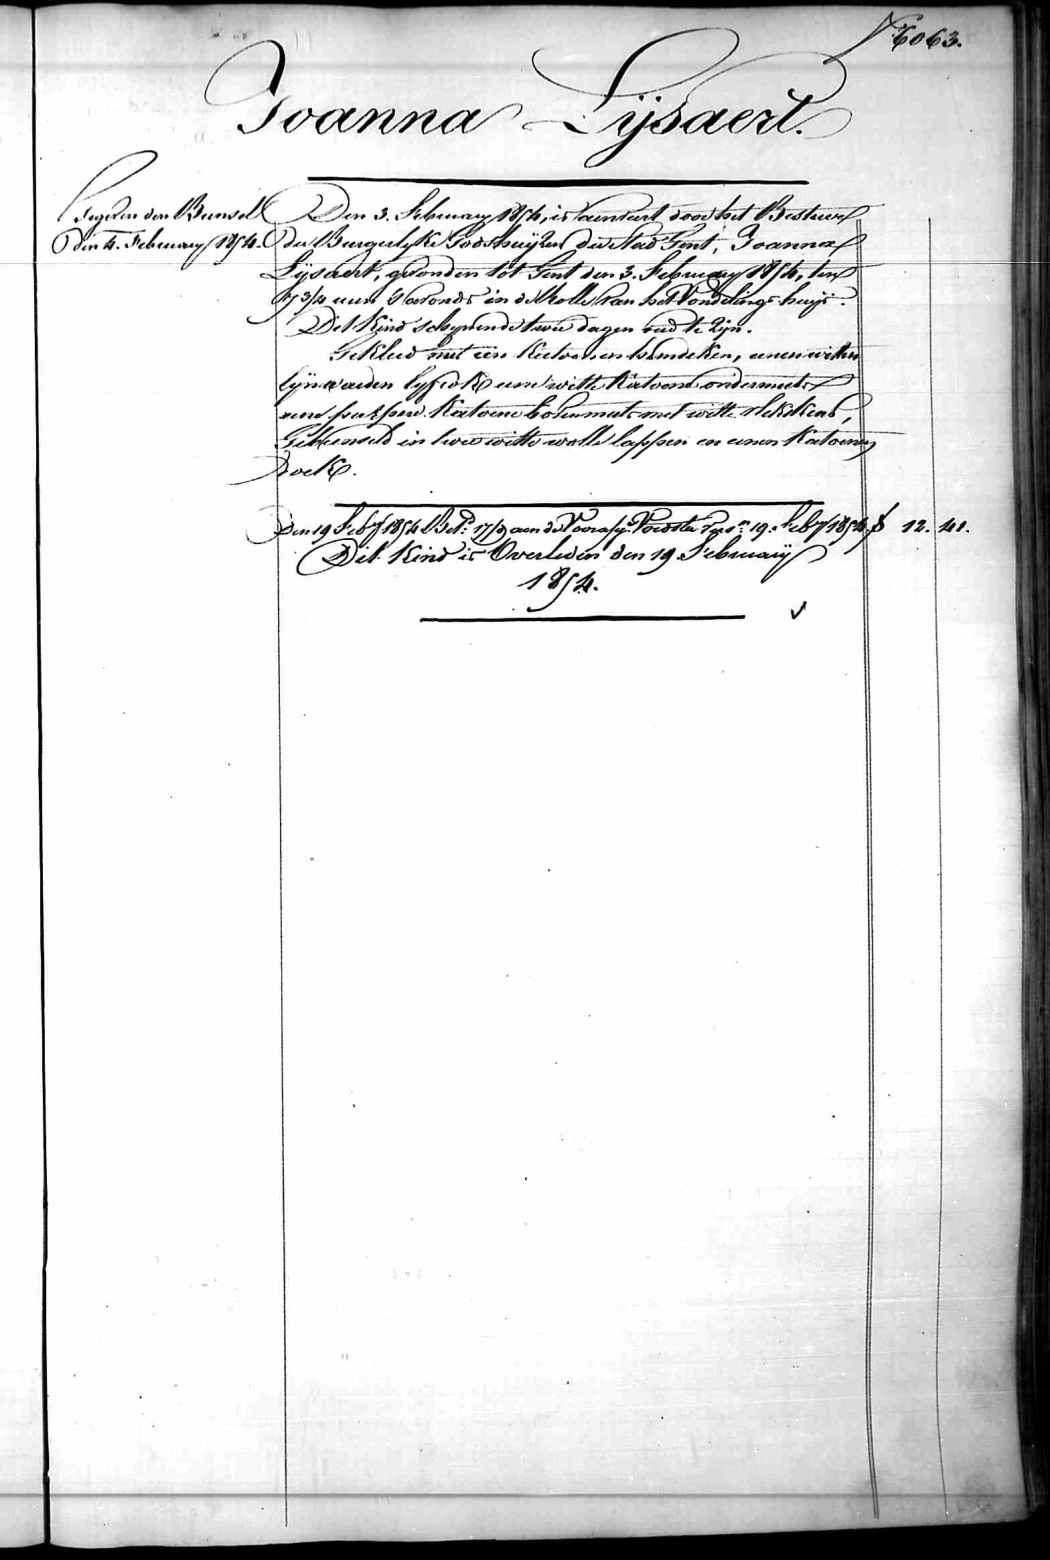 N.º 6063.
Joanna Lÿsaert.
Gegeven den Bunsel
den 4. February 1854.
Den 3. February 1854, is aenveert door het Bestuer
der Burgerlyke Godshuÿzen der Stad Gent, Joanna
Lÿsaert, gevonden tot Gent den 3. February 1854, ten
7 3/4 uren 's avonds in de Rolle van het Vondelings huÿs.
Dit Kind schynende twee dagen oud te zyn.
Gekleed met een Katoenen hemdeken, eenen witten
lynwaeden lyfrok eene witte Katoene ondermuts
eene purpere Katoene bovenmuts met witte
Gebunseld in twee witte wolle lappen en eenen Katoenen
Doek.
Den 19 Feby 1854 Bet. 17/9 aen de Voorafy. Voedster 19. Feby 1854. 12. 41.
Dit Kind is Overleden den 19 February
1854.